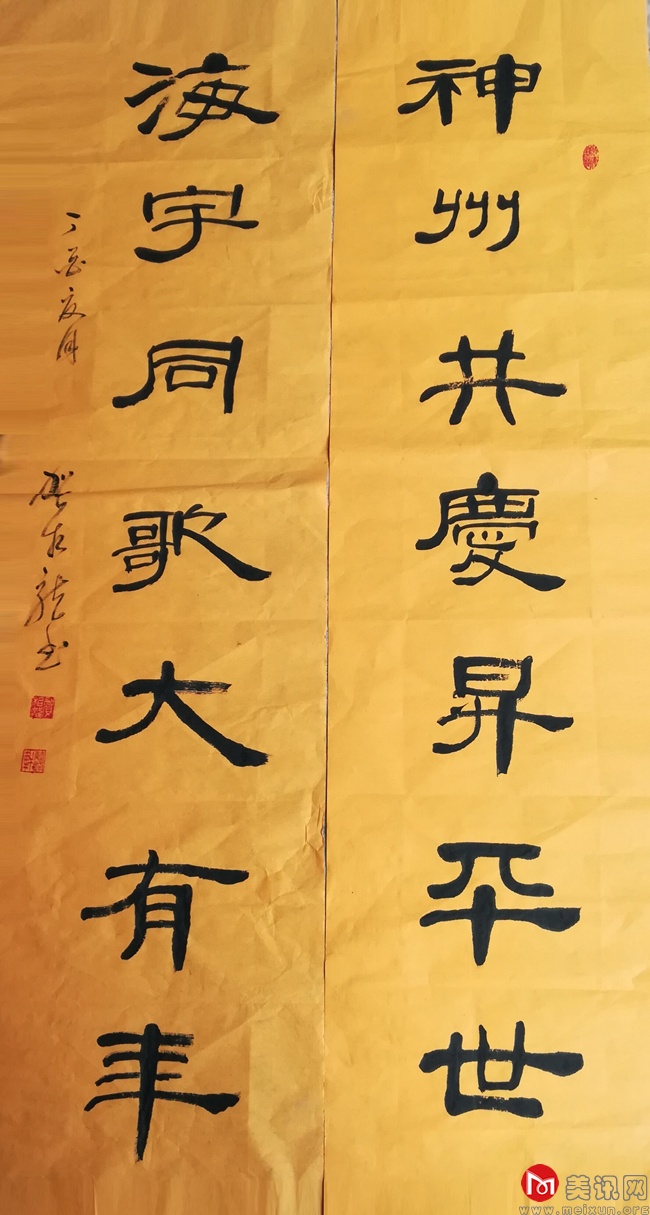 神州共慶昇平世
海宇同歌大有年
丁酉夏月
龙书
美讯网
www.meixun.org